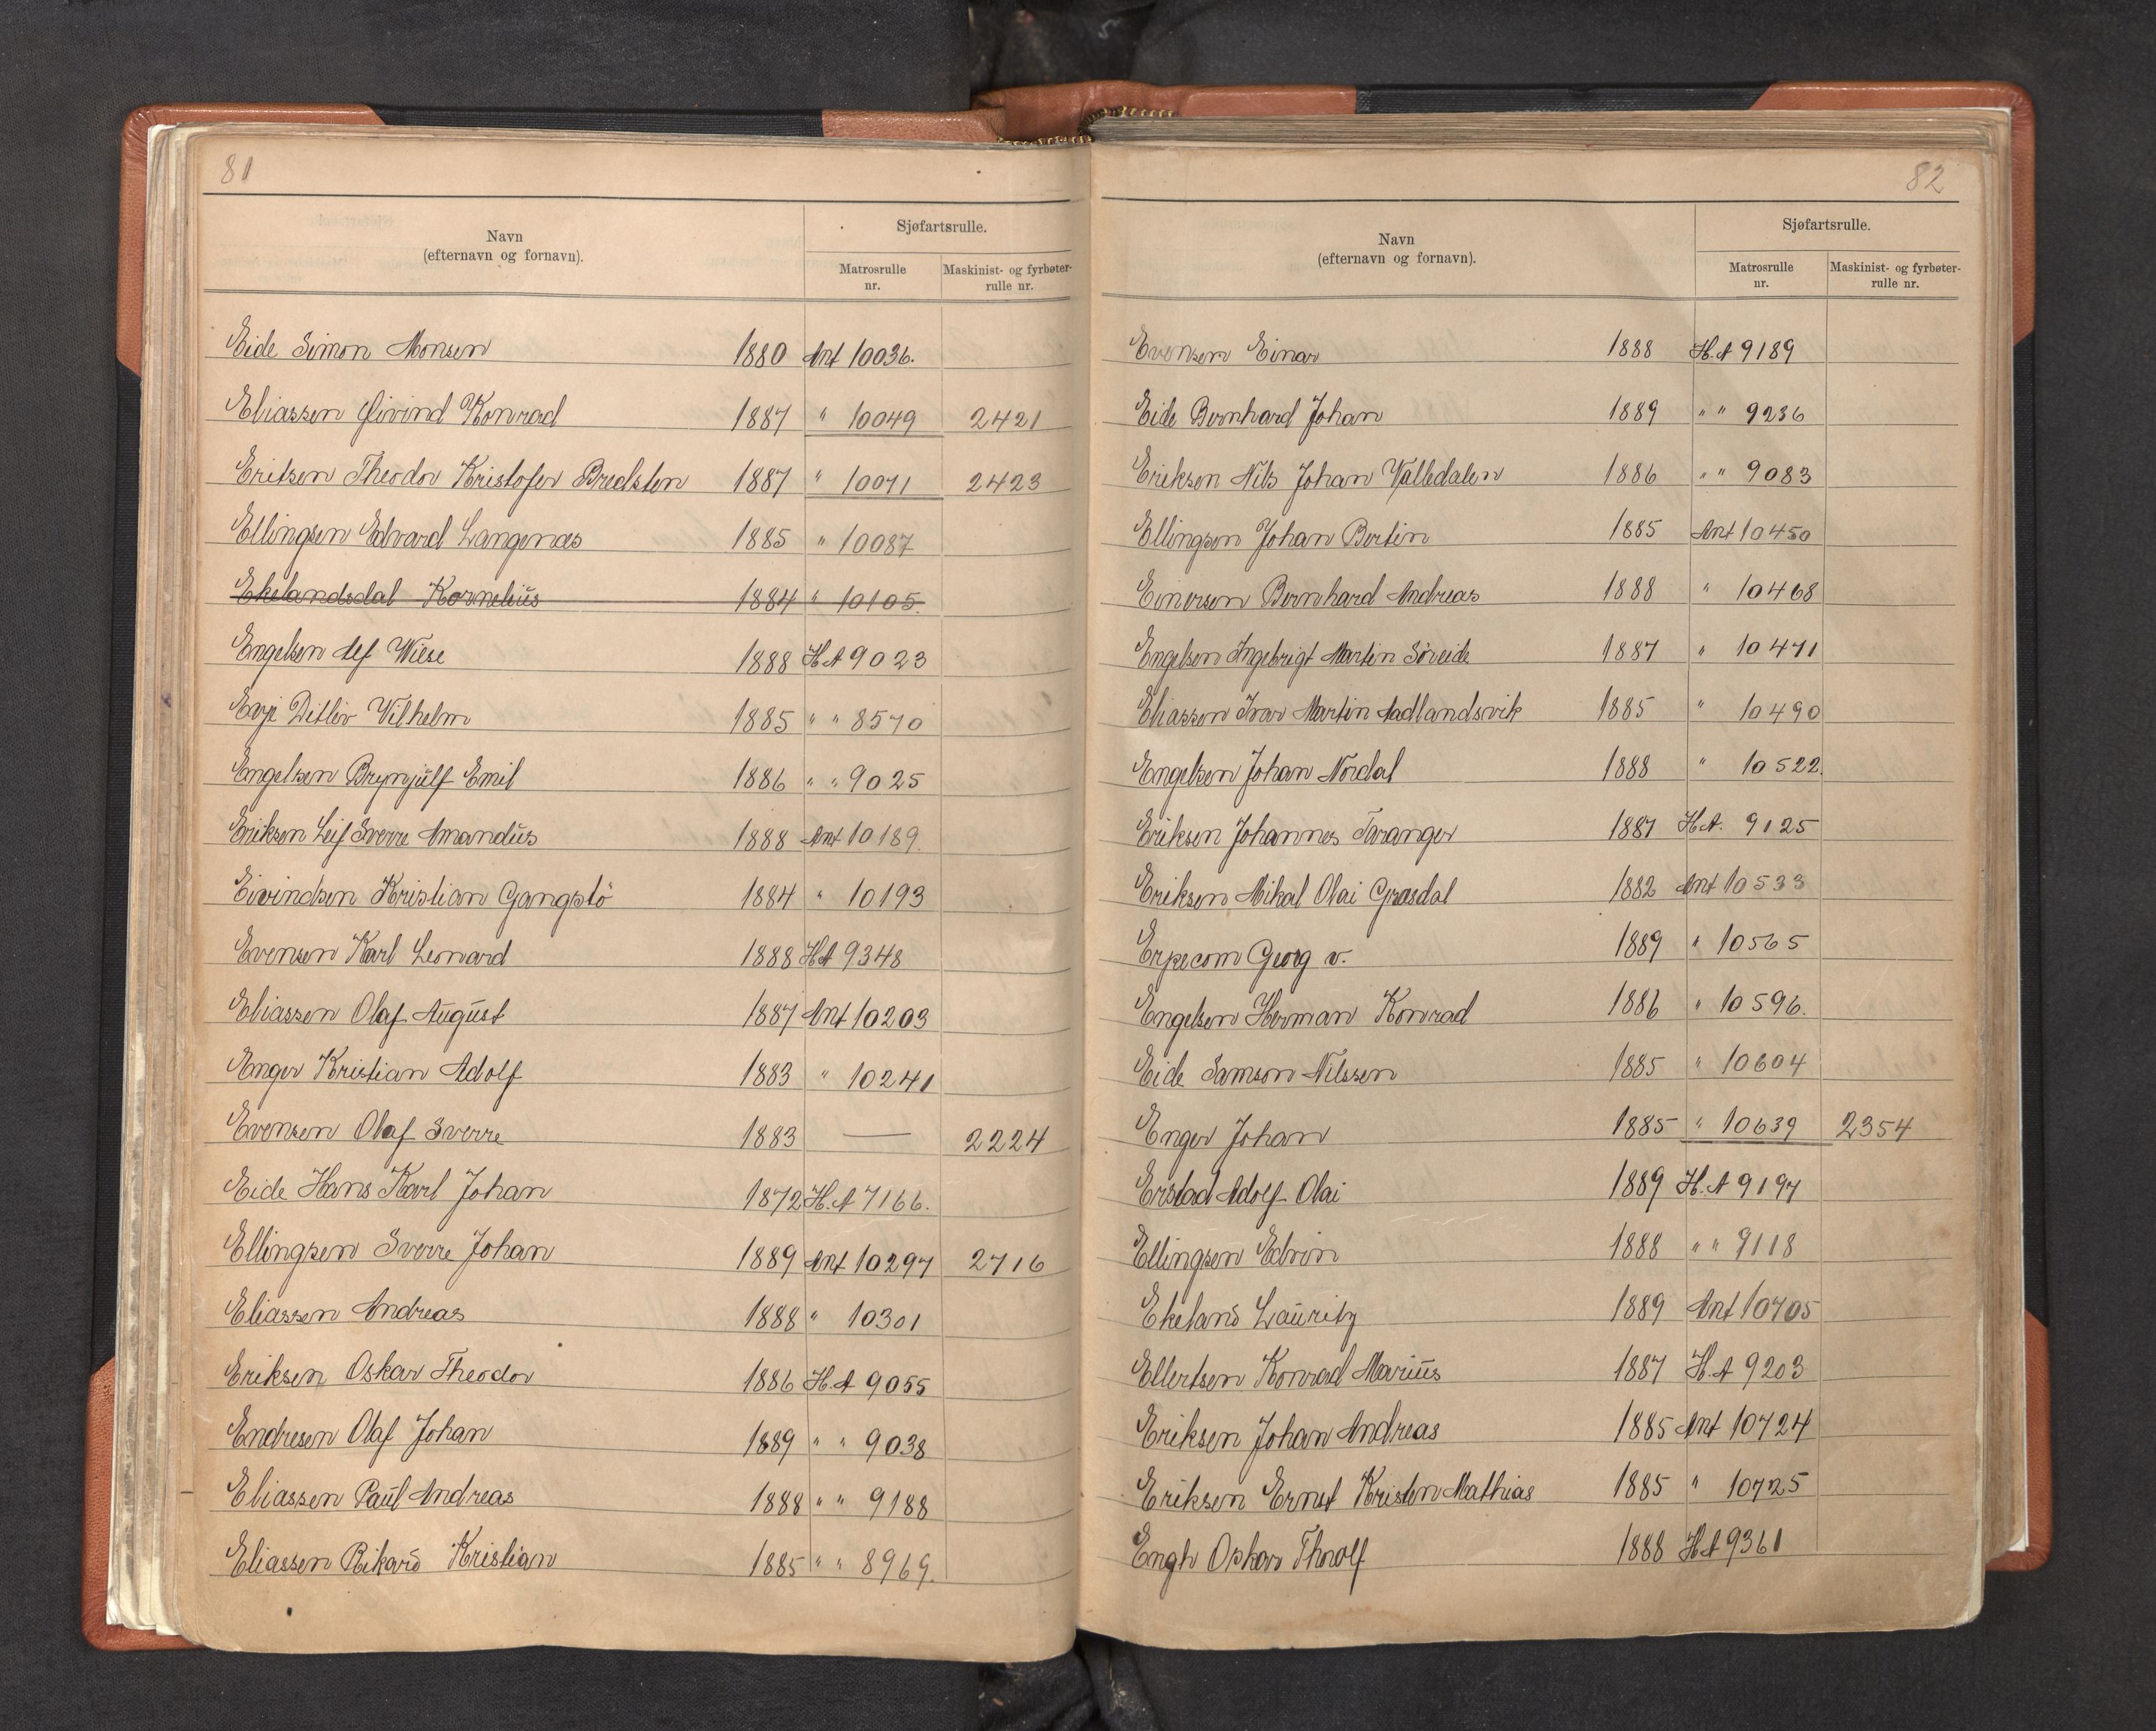 81
Navn
(efternavn og fornavn).
Sjøfartsrulle.
Matrosrulle
nr.
Maskinist- og fyrbøter-
rulle nr.
Eide Simon Monsen 1880 Ant 10036.
Eliassen Øivind Konrad 1887 " 10049 2421
Eriksen Theodor Kristofer Bredsten 1887 " 10071 2423
Ellingsen Edvard Langenæs 1885 " 10087
Ekelandsdal Kornelius 1884 " 10105.
Engelsen Alf Wiese 1888 H.A 9023
Evje Ditlev Vilhelm 1885 " " 8570
Engelsen Brynjulf Emil 1886 " " 9025
Eriksen Leif Sverre Amandus 1888 Ant 10189.
Eivindsen Kristian Gangstö 1884 " 10193
Evensen Karl Leonard 1888 H.A 9348
Eliassen Olaf August 1887 Ant 10203
Enger Kristian Adolf 1883 " 10241
Evensen Olaf Sverre 1883 — 2224
Eide Hans Karl Johan 1872 H.A 7166.
Ellingsen Sverre Johan 1889 Ant 10297 2716
Eliassen Andreas 1888 " 10301
Eriksen Oskar Theodor 1886 H.A 9055
Endresen Olaf Johan 1889 " " 9038
Eliassen Paul Andreas 1888 " " 9188
Eliassen Rikard Kristian 1885 " " 8969.
82
Navn
(efternavn og fornavn).
Sjøfartsrulle.
Matrosrulle
nr.
Maskinist- og fyrbøter-
rulle nr.
Evensen Einar 1888 H.A 9189
Eide Bernhard Johan 1889 " " 9236
Eriksen Nils Johan Valledalen 1886 " " 9083
Ellingsen Johan Bertin 1885 Ant 10450
Einersen Bernhard Andreas 1888 " 10468
Engelsen Ingebrigt Martin Söreide 1887 " 10471
Eliassen Ivar Martin Aadlandsvik 1885 " 10490
Engelsen Johan Nordal 1888 " 10522.
Eriksen Johannes Taranger 1887 H.A. 9125
Eriksen Mikal Olai Græsdal 1882 Ant 10533
Erpecom Georg v. 1889 " 10565
Engelsen Herman Konrad 1886 " 10596.
Eide Samson Nilssen 1885 " 10604
Enger Johan 1885 " 10639 2354
Erstad Adolf Olai 1889 H.A 9197
Ellingsen Edvin 1888 " " 9118
Ekeland Lauritz 1889 Ant 10705
Ellertsen Konrad Marius 1887 H.A 9203
Eriksen Johan Andreas 1885 Ant 10724
Eriksen Ernst Kristen Mathias 1885 " 10725
Engh Oskar Thorolf 1888 H.A 9361